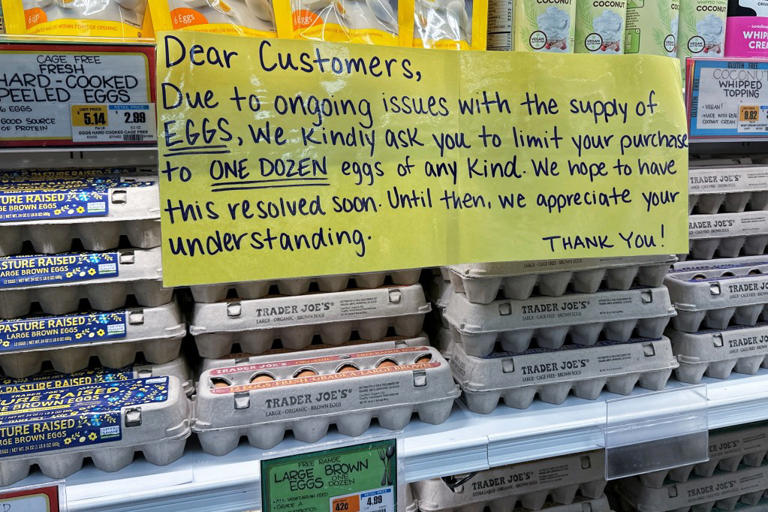 Dear Customers,
Due to ongoing issues with the supply of
EGGS, We Kindly ask you to limit your purchase
to ONE DOZEN eggs of any Kind. We hope to have
this resolved soon. Until then, we appreciate your
understanding.
THANK YOU!
6 EGGS
6 Eggs
COCONUT
COCONUT
COCONUT
WHIP
CAGE FREE
FRESH
HARD COOKED
PEELED EGGS
6 EGGS
GOOD SOURCE
OF PROTEIN
5.14
2.99
GLUTEN FREE
COCONUT
WHIPPED
TOPPING
VEGAN!
8.82
PASTURE RAISED
BROWN EGGS
PASTURE RAISED
LARGE BROWN EGGS
PASTURE RAISED
LARGE BROWN EGGS
PASTURE RAISED
PASTURE RAISED
LARGE BROWN EGGS
TRADER JOE'S
LARGE • ORGANIC • BROWN EGGS
TRADER JOE'S
TRADER JOE'S
LARGE • ORGANIC • BROWN EGGS
TRADER JOE'S
TRADER JOE'S
TRADER JOE'S
TRADER JOE'S
TRADER JOE'S
TRADER JOE'S
FREE RANGE
LARGE BROWN
EGGS ONE DOZEN
ALL VEGETARIAN FEED
GRADE A
42¢
4.99
TRADER JOE'S
TRADER JOE'S
TRADER JOE'S